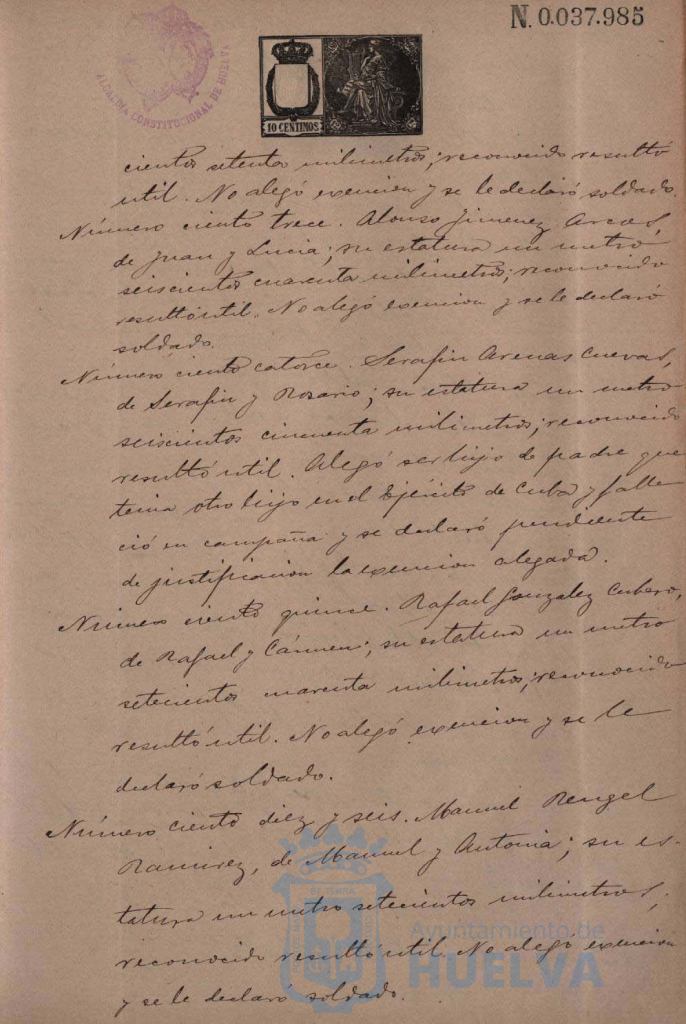 N. 0.037.985
ALCALDIA CONSTITUCIONAL DE HUELVA
10 CENTIMOS
cientos setenta milimetros; reconocido resultó
util. No alegó exencion y se le declaró soldado.
Número ciento trece. Alonso Jimenez Arcos,
de Juan y Lucia; su estatura un metro
seiscientos cuarenta milimetros; reconocido
resultó util. No alegó exencion y se le declaró
soldado.
Número ciento catorce. Serafin Arenas Cuevas,
de Serafin y Rosario; su estatura un metro
seiscientos cincuenta milimetros; reconocido
resultó util. Alegó ser hijo de padre que
tenia otro hijo en el Ejército de Cuba y falle
ció en campaña y se declaró pendiente
de justificacion la exencion alegada.
Número ciento quince. Rafael Gonzalez Cubero,
de Rafael y Cármen; su estatura un metro
setecientos cuarenta milimetros; reconocido
resultó util. No alegó exencion y se le
declaró soldado.
Número ciento diez y seis. Manuel Rengel
Ramirez, de Manuel y Antonia; su es-
tatura un metro setecientos milimetros,
reconocido resultó util. No alegó exencion
y se le declaró soldado.
Ayuntamiento de
HUELVA